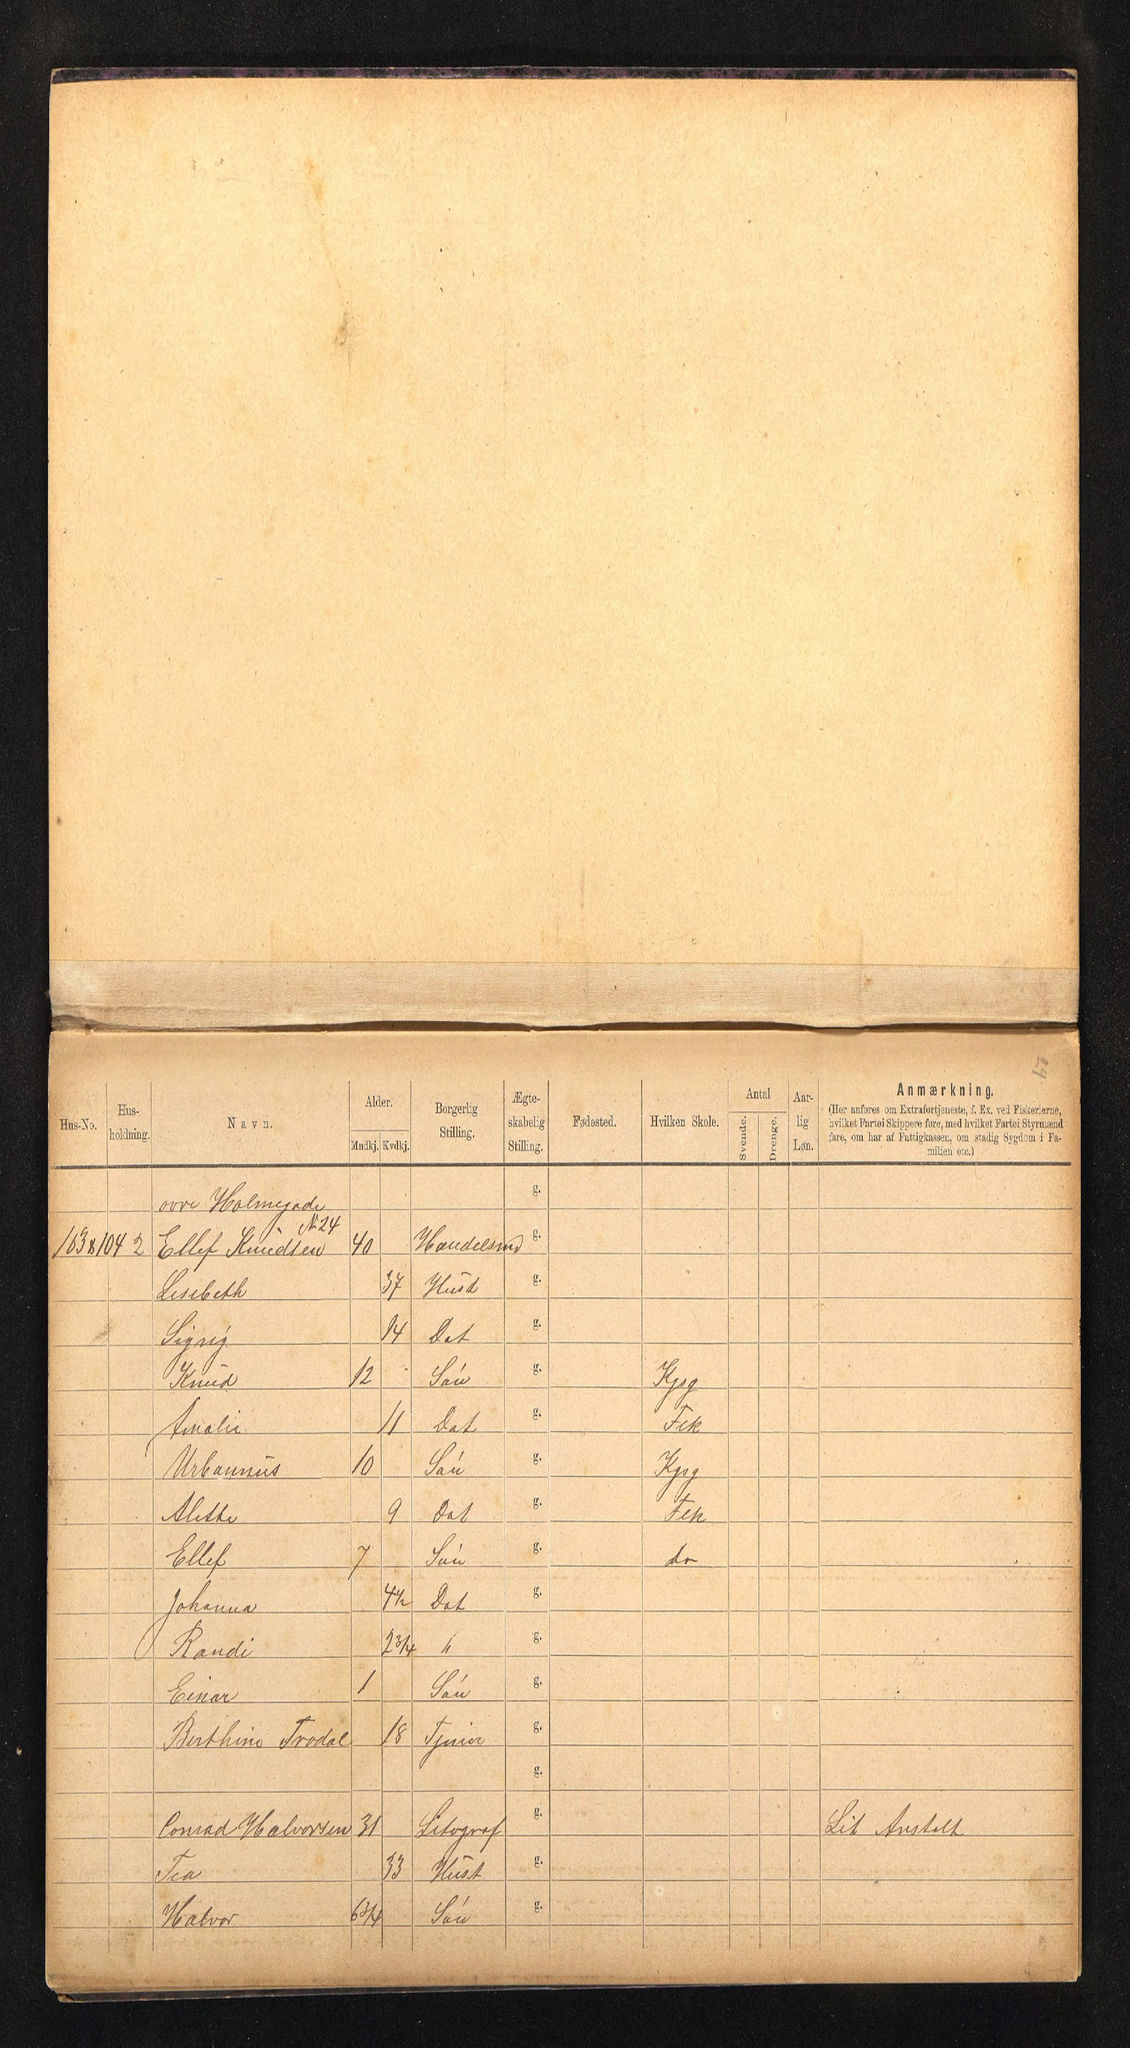 24
Hus-No. Hus-holdning. Navn. Alder. Mndkj. Kvdkj. Borgerlig Stilling. Ægte-skabelig Stilling. Fødested. Hvilken Skole. Antal Svende. Drenge. Aar-lig Løn. Anmærkning.
(Her anføres om Extrafortjeneste, f. Ex. ved Fiskerierne,
hvilket Partei Skippere føre, med hvilket Partei Styrmænd
fare, om har af Fattigkassen, om stadig Sygdom i Fa-
milien etc.)
ovre Holmegade g.
No 24
103 & 104 2 Ellef Knudsen 40 Handelsmd g.
Lisebeth 37 Hust g.
Sigrig 14 Dat g.
Knud 12 Søn g. Kjsg
Amalie 11 Dat g. Fsk
Urbannus 10 Søn g. Kjsg
Alette 9 Dat g. Fsk
Ellef 7 Søn g. do
Johanna 4 1/2 Dat g.
Randi 2 3/4 " g.
Einar 1 Søn g.
Berthine Trodal 18 Tjener g.
g.
Conrad Halvorsen 31 Litograf g. Lit Anstalt
Tea 33 Hust g.
Halvor 6 3/4 Søn g.